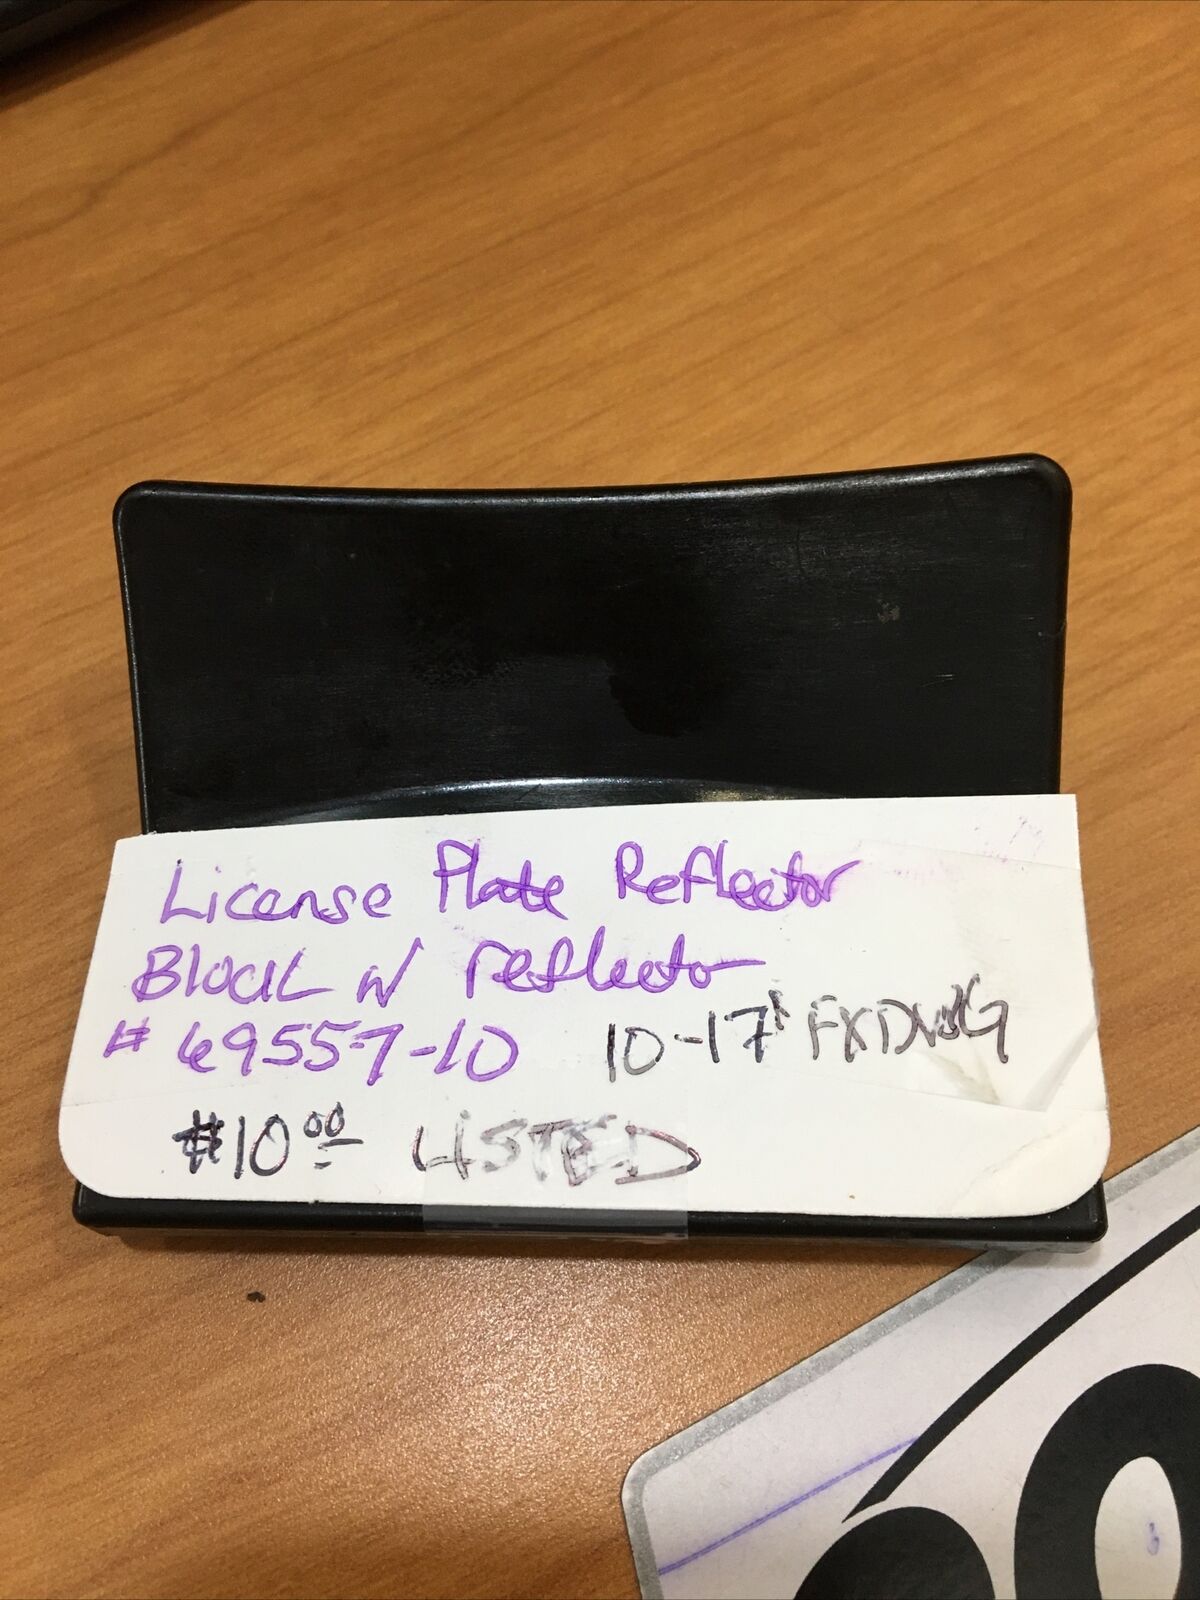 License Plate Reflector
Block w/ reflector
# 69557-10 10-17' FXDWG
$10.00 LISTED
0